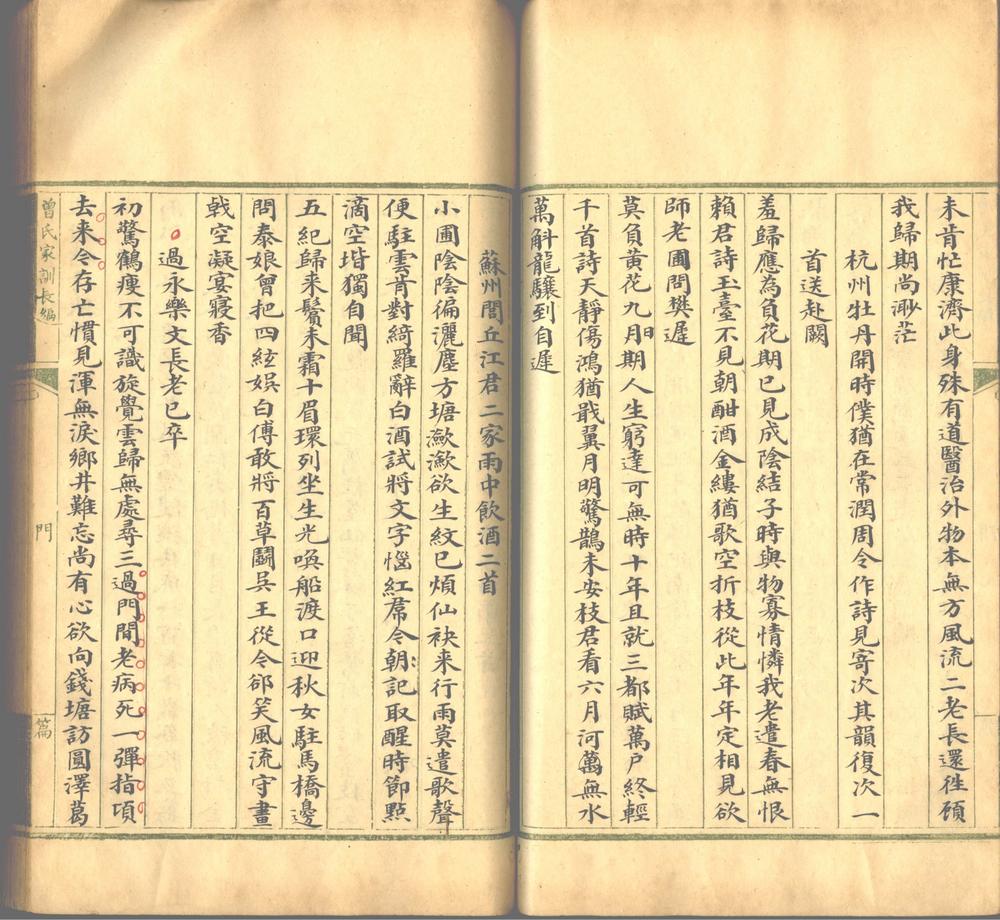 未肯忙康濟此身殊有道醫治外物本無方風流二老長還往顧
我歸期尚渺茫
杭州牡丹開時僕猶在常潤周令作詩見寄次其韻復次一
首送赴闕
羞歸應為負花期已見成陰結子時與物寡情憐我老遣春無恨
賴君詩玉臺不見朝酣酒金縷猶歌空折枝從此年年定相見欲
師老圃問樊遲
莫負黃花九月期人生窮達可無時十年且就三都賦萬户終輕
千首詩天靜傷鴻猶戢翼月明驚鵲未安枝君看六月河萬無水
萬斛龍驤到自遲
蘇州閭丘江君二家雨中飲酒二首
小圃陰陰徧灑塵方塘瀲瀲欲生紋已煩仙袂来行雨莫遣歌聲
便駐雲肯對綺羅辭白酒試將文字惱紅帬今朝記取醒時節點
滴空堦獨自聞
五紀歸来鬢未霜十眉環列坐生光喚船渡口迎秋女駐馬橋邊
問泰娘曾把四絃娱白傅敢將百草鬬吳王從今卻笑風流守畫
戟空凝宴寢香
過永樂文長老已卒
初驚鶴瘦不可識旋覺雲歸無處尋三過門間老病死一彈指頃
去来今存亡慣見渾無淚鄉井難忘尚有心欲向錢塘訪圓澤葛
曾氏家訓長編
門
篇